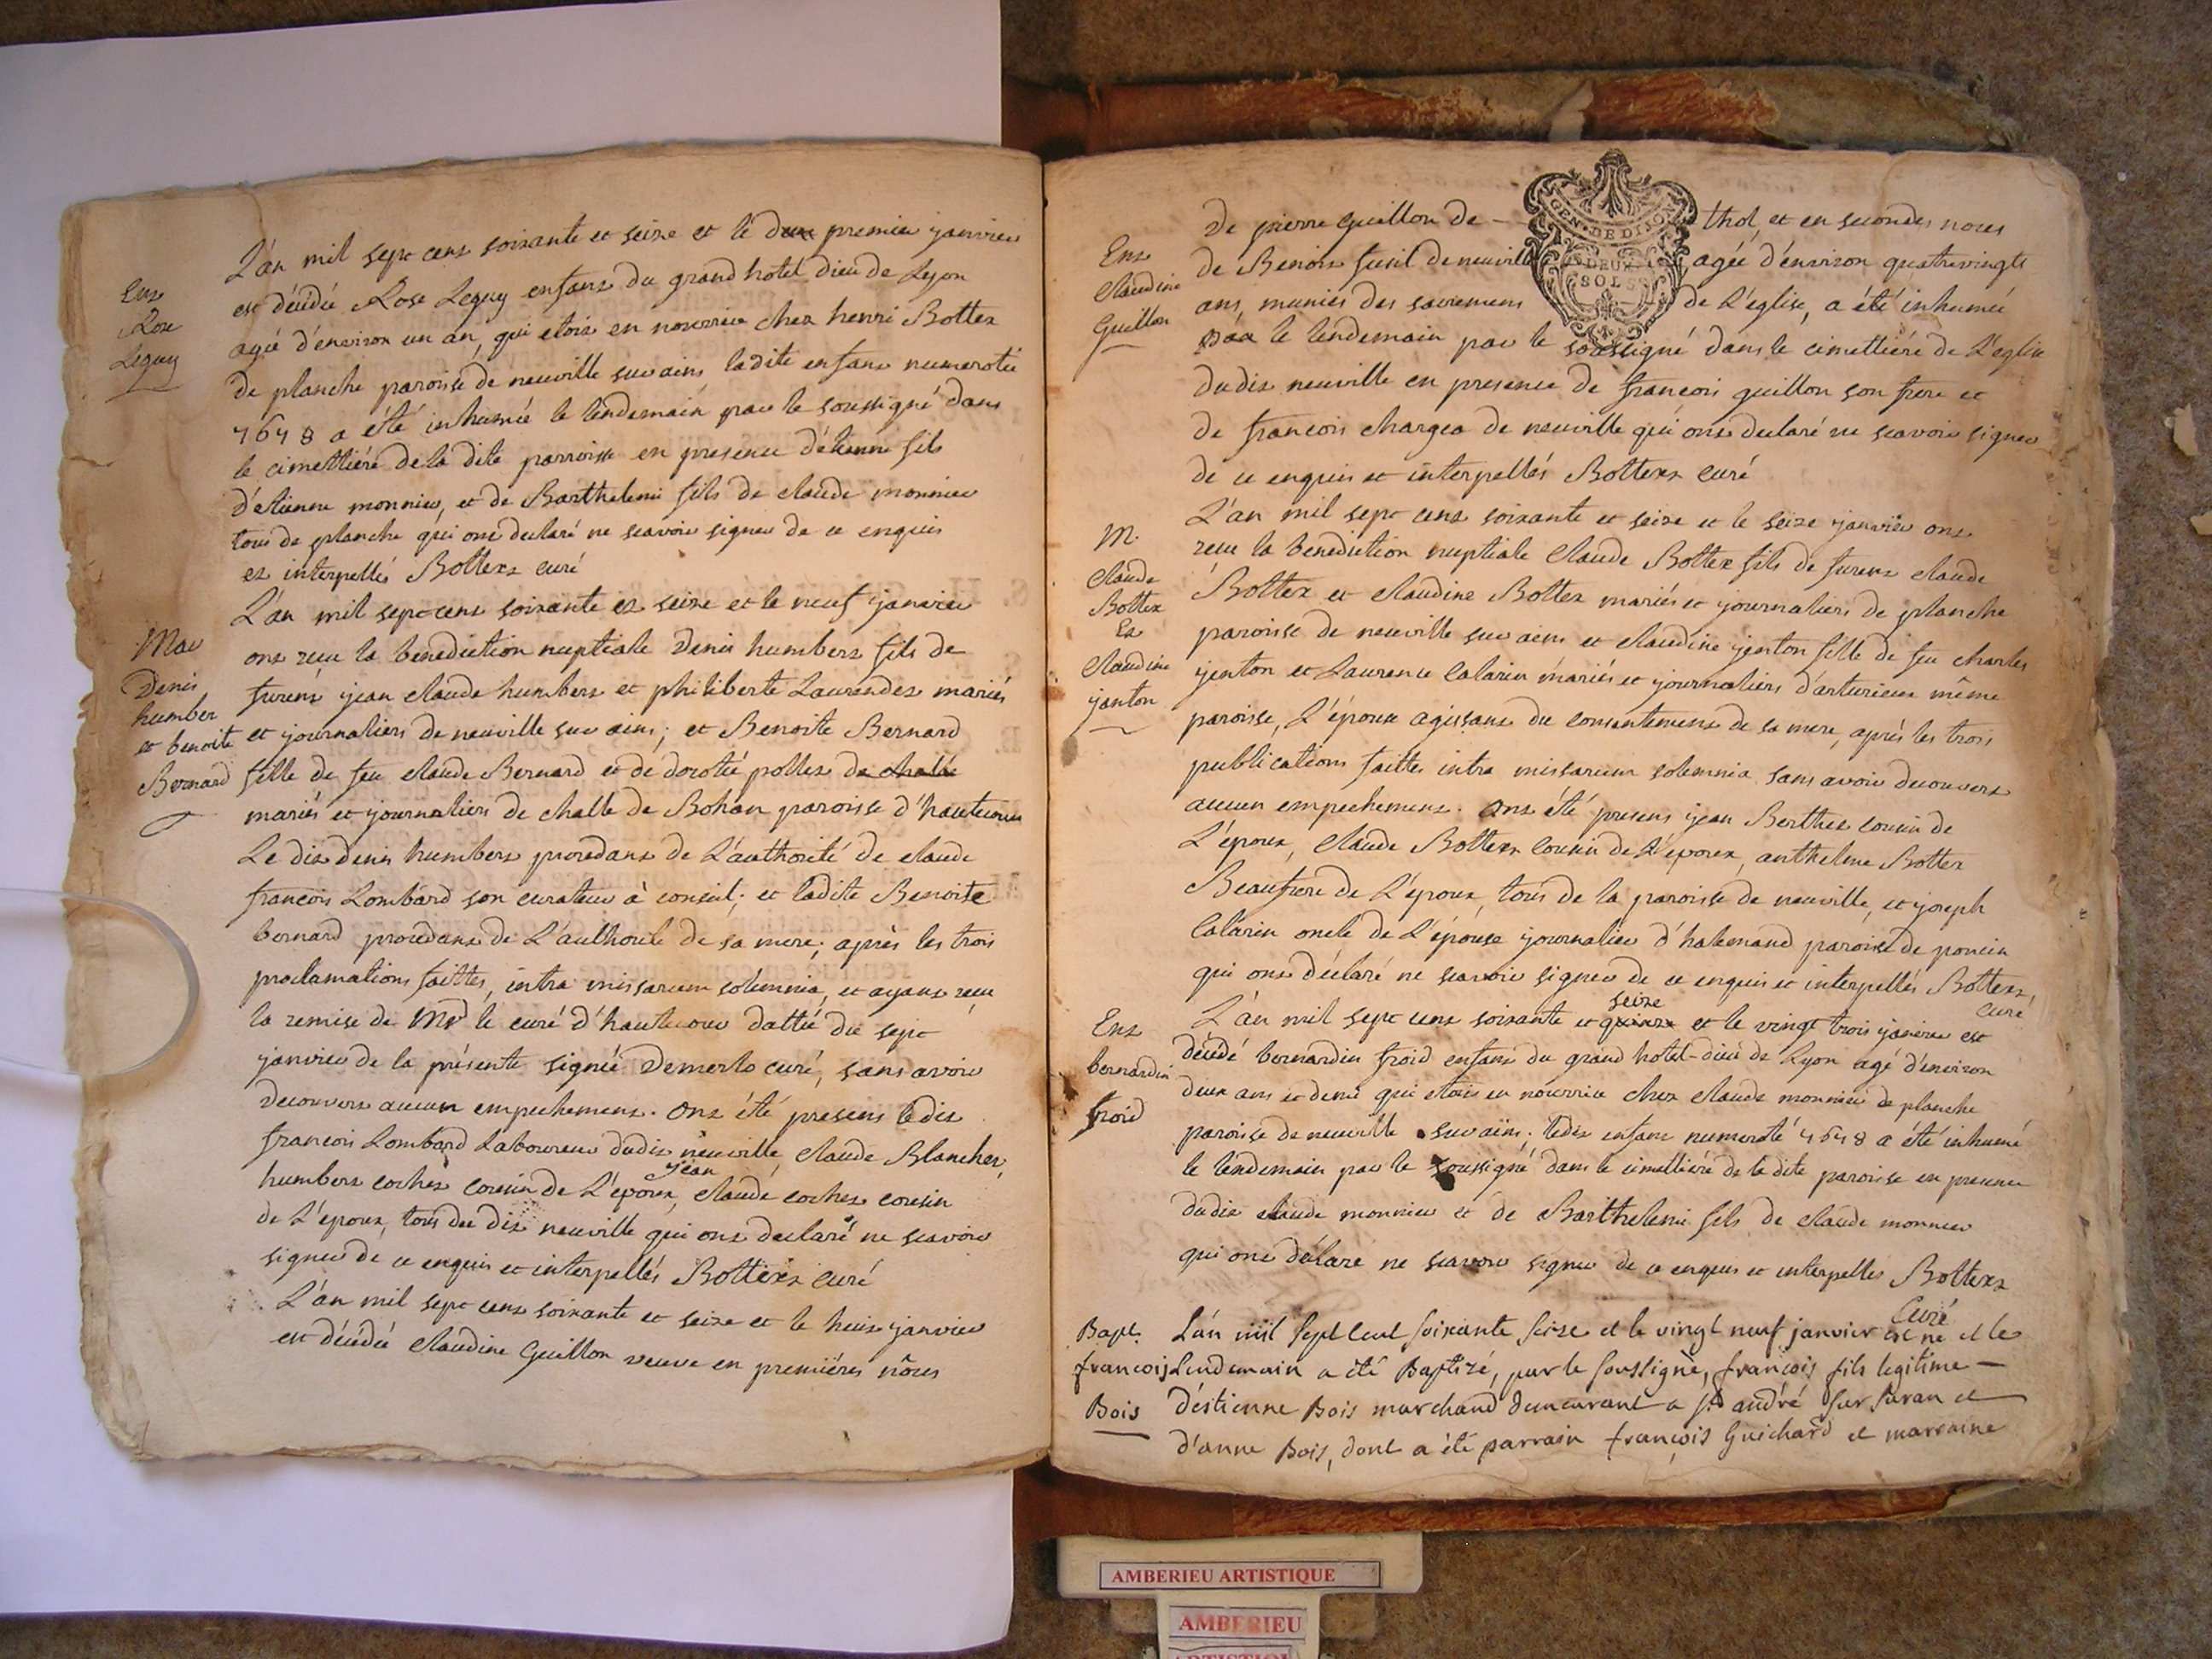 L'an mil sept cens soixante et seize et le deux premier janvier
Ent
Rose
Leguy
est décédée Rose Leguy enfant du grand hotel dieu de Lyon
agée d'environ un an, qui etoit en nourrice chez henri Bottex
de planche paroisse de neuville sur ains ladite enfant numerotée
4648 a été inhumée le lendemain par le soussigné dans
le cimettiére de la dite parroisse en presence d'étienne fils
d'étienne monnier, et de Barthelemi fils de claude monnier
tous de planche qui ont declaré ne scavoir signer de ce enquis
et interpellés Bottex curé
L'an mil sept cens soixante et seize et le neuf janvier
Mar
Denis
humber
et benoite
Bernard
ont recu la benediction nuptiale Denis humbert fils de
furent jean claude humbert et philiberte Laurendet mariés
et journaliers de neuville sur ains; et Benoite Bernard
fille de feu claude Bernard et de dorotée pollet de challe
mariés et journaliers de challe de Bohan paroisse d'hautecour
Le dit denis humbert procedant de L'authorité de claude
françois Lombard son curateur à conseil; et ladite Benoite
bernard procedant de L'authorité de sa mere; après les trois
proclamations faittes, intra missarum solemnia, et ayant recu
la remise de Mr le curé d'hautecour dattée du sept
janvier de la présente signée Demerlo curé, sans avoir
decouvert aucun empechement. Ont été presens le dit
françois Lombard Laboureur dudit neuville, claude Blanchet,
humbert cochet cousin de L'époux, jean claude cochet cousin
de L'epoux, tous du dit neuville qui ont declaré ne scavoir
signer de ce enquis et interpellés Bottex curé
L'an mil sept cens soixante et seize et le huit janvier
est décédée claudine Guillon veuve en premiéres nôces
GEN. DE DIJON
DEUX
SOLS
De pierre guillon de - thol, et en secondes noces
Ent
claudine
Guillon
de Benoit fusil de neuville agée d'environ quatrevingts
ans, munies des sacremens de L'église, a été inhumée
le lendemain par le soussigné dans le cimettiére de L'eglise
dudit neuville en presence de françois guillon son frere et
de françois chargea de neuville qui ont declaré ne scavoir signer
de ce enquis et interpellés Bottex curé
L'an mil sept cens soixante et seize et le seize janvier ont
M.
claude
Bottex
Et
claudine
janton
recu la benediction nuptiale claude Bottex fils de furent claude
Bottex et claudine Bottex mariés et journaliers de planche
paroisse de neuville sur ains et claudine jenton fille de feu charles
jenton et Laurence Calarin mariés et journaliers d'arturieux même
paroisse, L'épouse agissant du consentement de sa mere, après les trois
publications faittes intra missarum solemnia sans avoir decouvert
aucun empechement. Ont été presens jean Berthet cousin de
L'époux, Claude Bottex cousin de L'époux, anthelme Bottex
Beaufrere de L'époux, tous de la paroisse de neuville, et joseph
Calarin oncle de L'épouse journalier d'halemand paroisse de poncin
qui ont déclaré ne scavoir signer de ce enquis et interpellés Bottex,
curé
L'an mil sept cens soixante et quinze seize et le vingt trois janvier est
Ent
bernardin
froid
décédé bernardin froid enfant du grand hotel-dieu de Lyon agé d'environ
deux ans et demi qui etoit en nourrice chez claude monnier de planche
paroisse de neuville sur ains; ledit enfant numeroté 4648 a été inhumé
le lendemain par le soussigné dans le cimettiére de la dite paroisse en presence
dudit claude monnier et de Barthelemi fils de claude monnier
qui ont déclare ne scavoir signer de ce enquis et interpelles Bottex
Curé
Bapt.
francois
Bois
L'an mil sept cent soixante seize et le vingt neuf janvier est né et le
Lendemain a été Baptizé, par le soussigné, françois fils legitime —
d'éstienne Bois marchand demeurant a st andré sur suran et
d'anne Bois, dont a été parrain françois Guichard et marraine
AMBERIEU ARTISTIQUE
AMBERIEU
ARTISTIQUE